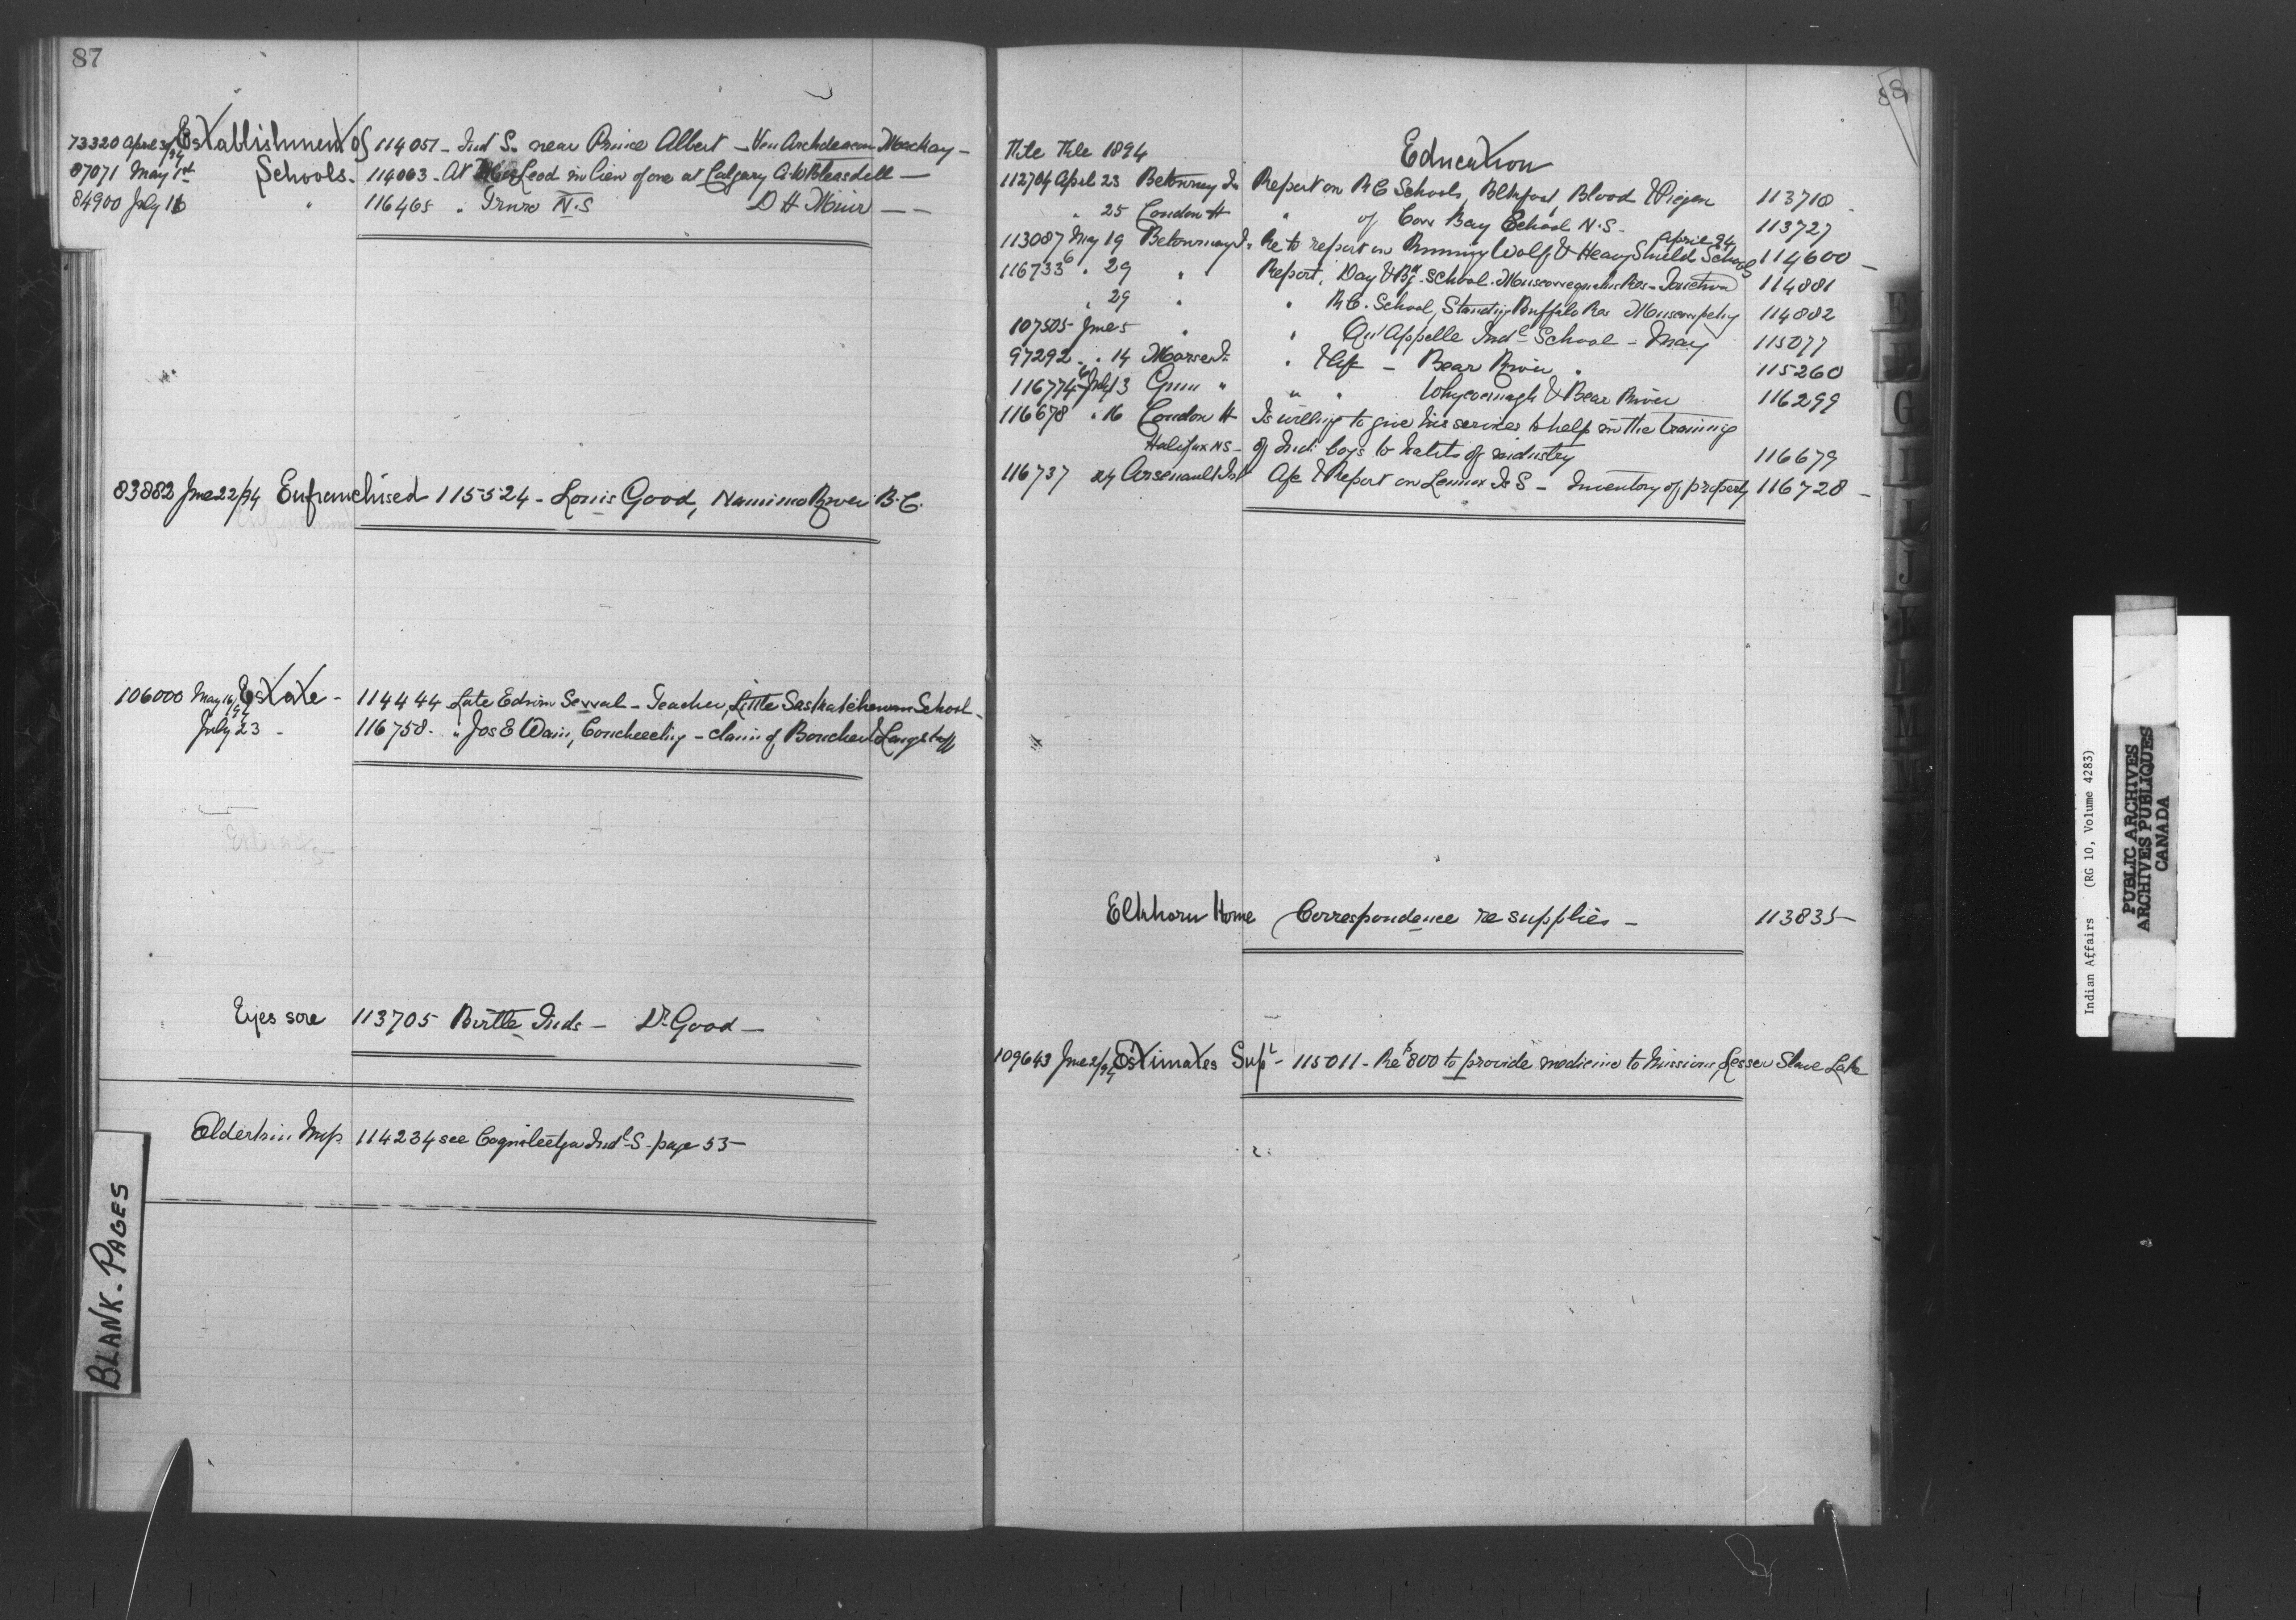 87
73320 April 30/94 Establishment of 114051 - Ind S. near Prince Albert - Ven Archdeacon Mackay -
87071 May 1st Schools. 114063 - At MacLeod in lieu of one at Calgary A.W. Bleasdell -
84900 July 16 " 116465 " Truro N.S D H Muir - -
83882 June 22/94 Enfranchised 115524 - Louis Good, Nanimo River B.C.
106000 May 16/94 Estate - 114444 Late Edwin - Teacher, Little Saskatchewan School -
July 23 - 116758 - " Jos E Wain, - claim of Boucher & Langstaff
Extracts
Eyes sore 113705 Birtle Inds - Dr Good -
Elderkin 114234 see Coqualeetza Indl S - page 53 -
BLANK - PAGES
88
File File 1894
Education
112704 April 23 Betournay Is Report on R C Schools, Blkfoot, Blood & Piegan 113718 -
" 25 London H " of Cow Bay School N.S - 113727
113087 May 19 Betournay Is Re to report on Running Wolf & Heavy Shield Schools April 24 114600 -
116733 " 29 " Report, Day & Bg School 114881
" 29 " " R.C. School, Standing Buffalo Res 114882
107505 June 5 " " Qu'Appelle Indl School - May 115077
97292 - " 14 Morse Is " - Bear River " 115260
116774 July 13 Gunn " " " Whycocomagh & Bear River 116299
116678 " 16 London H Is willing to give his services to help in the training
Halifax NS - of Indi boys to habits of industry 116679
116737 24 Arsenault Jno Ap & Report on Lennox Is S - Inventory of property 116728 -
Elkhorn Home Correspondence re supplies - 113835
109643 June 2/94 Estimates Supl - 115011 - Re $800 to provide medicine to Missions Lesser Slave Lake
E
G
H
I
J
K
M
Indian Affairs (RG 10, Volume 4283)
PUBLIC ARCHIVES
ARCHIVES PUBLIQUES
CANADA